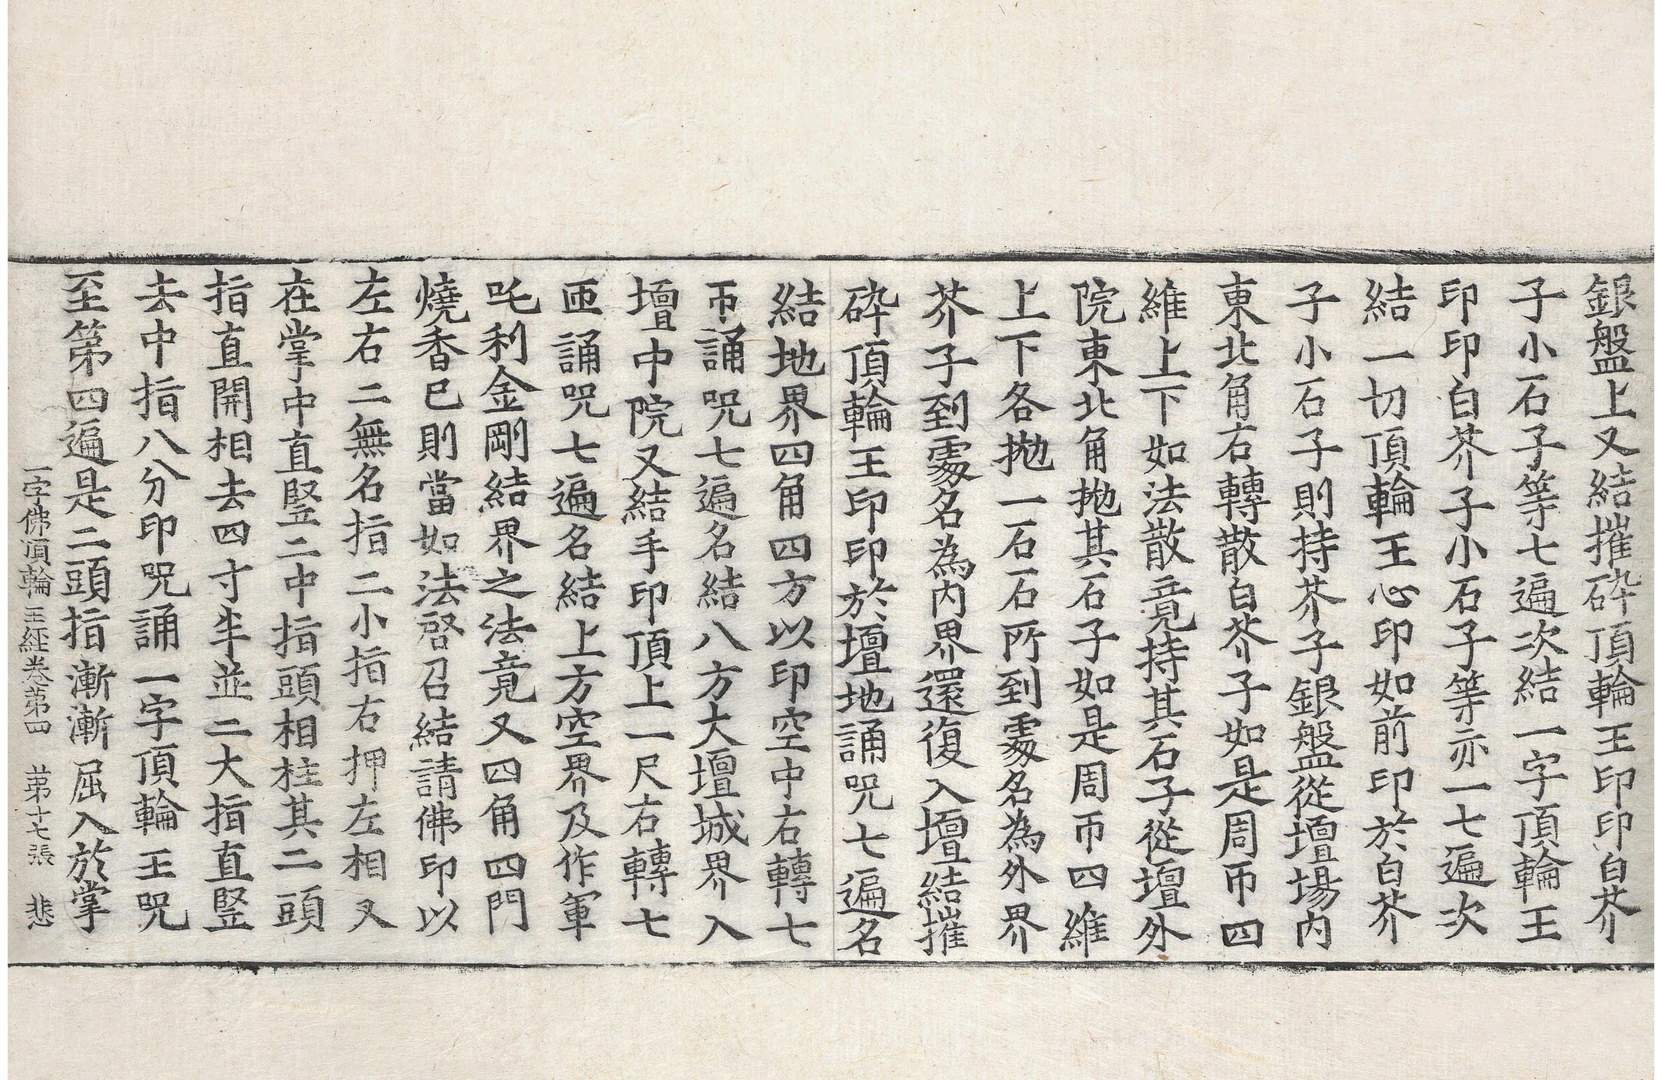 銀盤上又結摧碎頂輪王印印白芥
子小石子等七遍次結一字頂輪王
印印白芥子小石子等亦一七遍次
結一切頂輪王心印如前印於白芥
子小石子則持芥子銀盤從壇場內
東北角右轉散白芥子如是周帀四
維上下如法散竟持其石子從壇外
院東北角拋其石子如是周帀四維
上下各拋一石石所到處名為外界
芥子到處名為內界還復入壇結摧
碎頂輪王印印於壇地誦呪七遍名
結地界四角四方以印空中右轉七
帀誦呪七遍名結八方大壇城界入
壇中院又結手印頂上一尺右轉七
匝誦呪七遍名結上方空界及作軍
吒利金剛結界之法竟又四角四門
燒香已則當如法啓召結請佛印以
左右二無名指二小指右押左相叉
在掌中直竪二中指頭相柱其二頭
指直開相去四寸半並二大指直竪
去中指八分印呪誦一字頂輪王呪
至第四遍是二頭指漸漸屈入於掌
一字佛頂輪王經卷第四 第十七張 悲